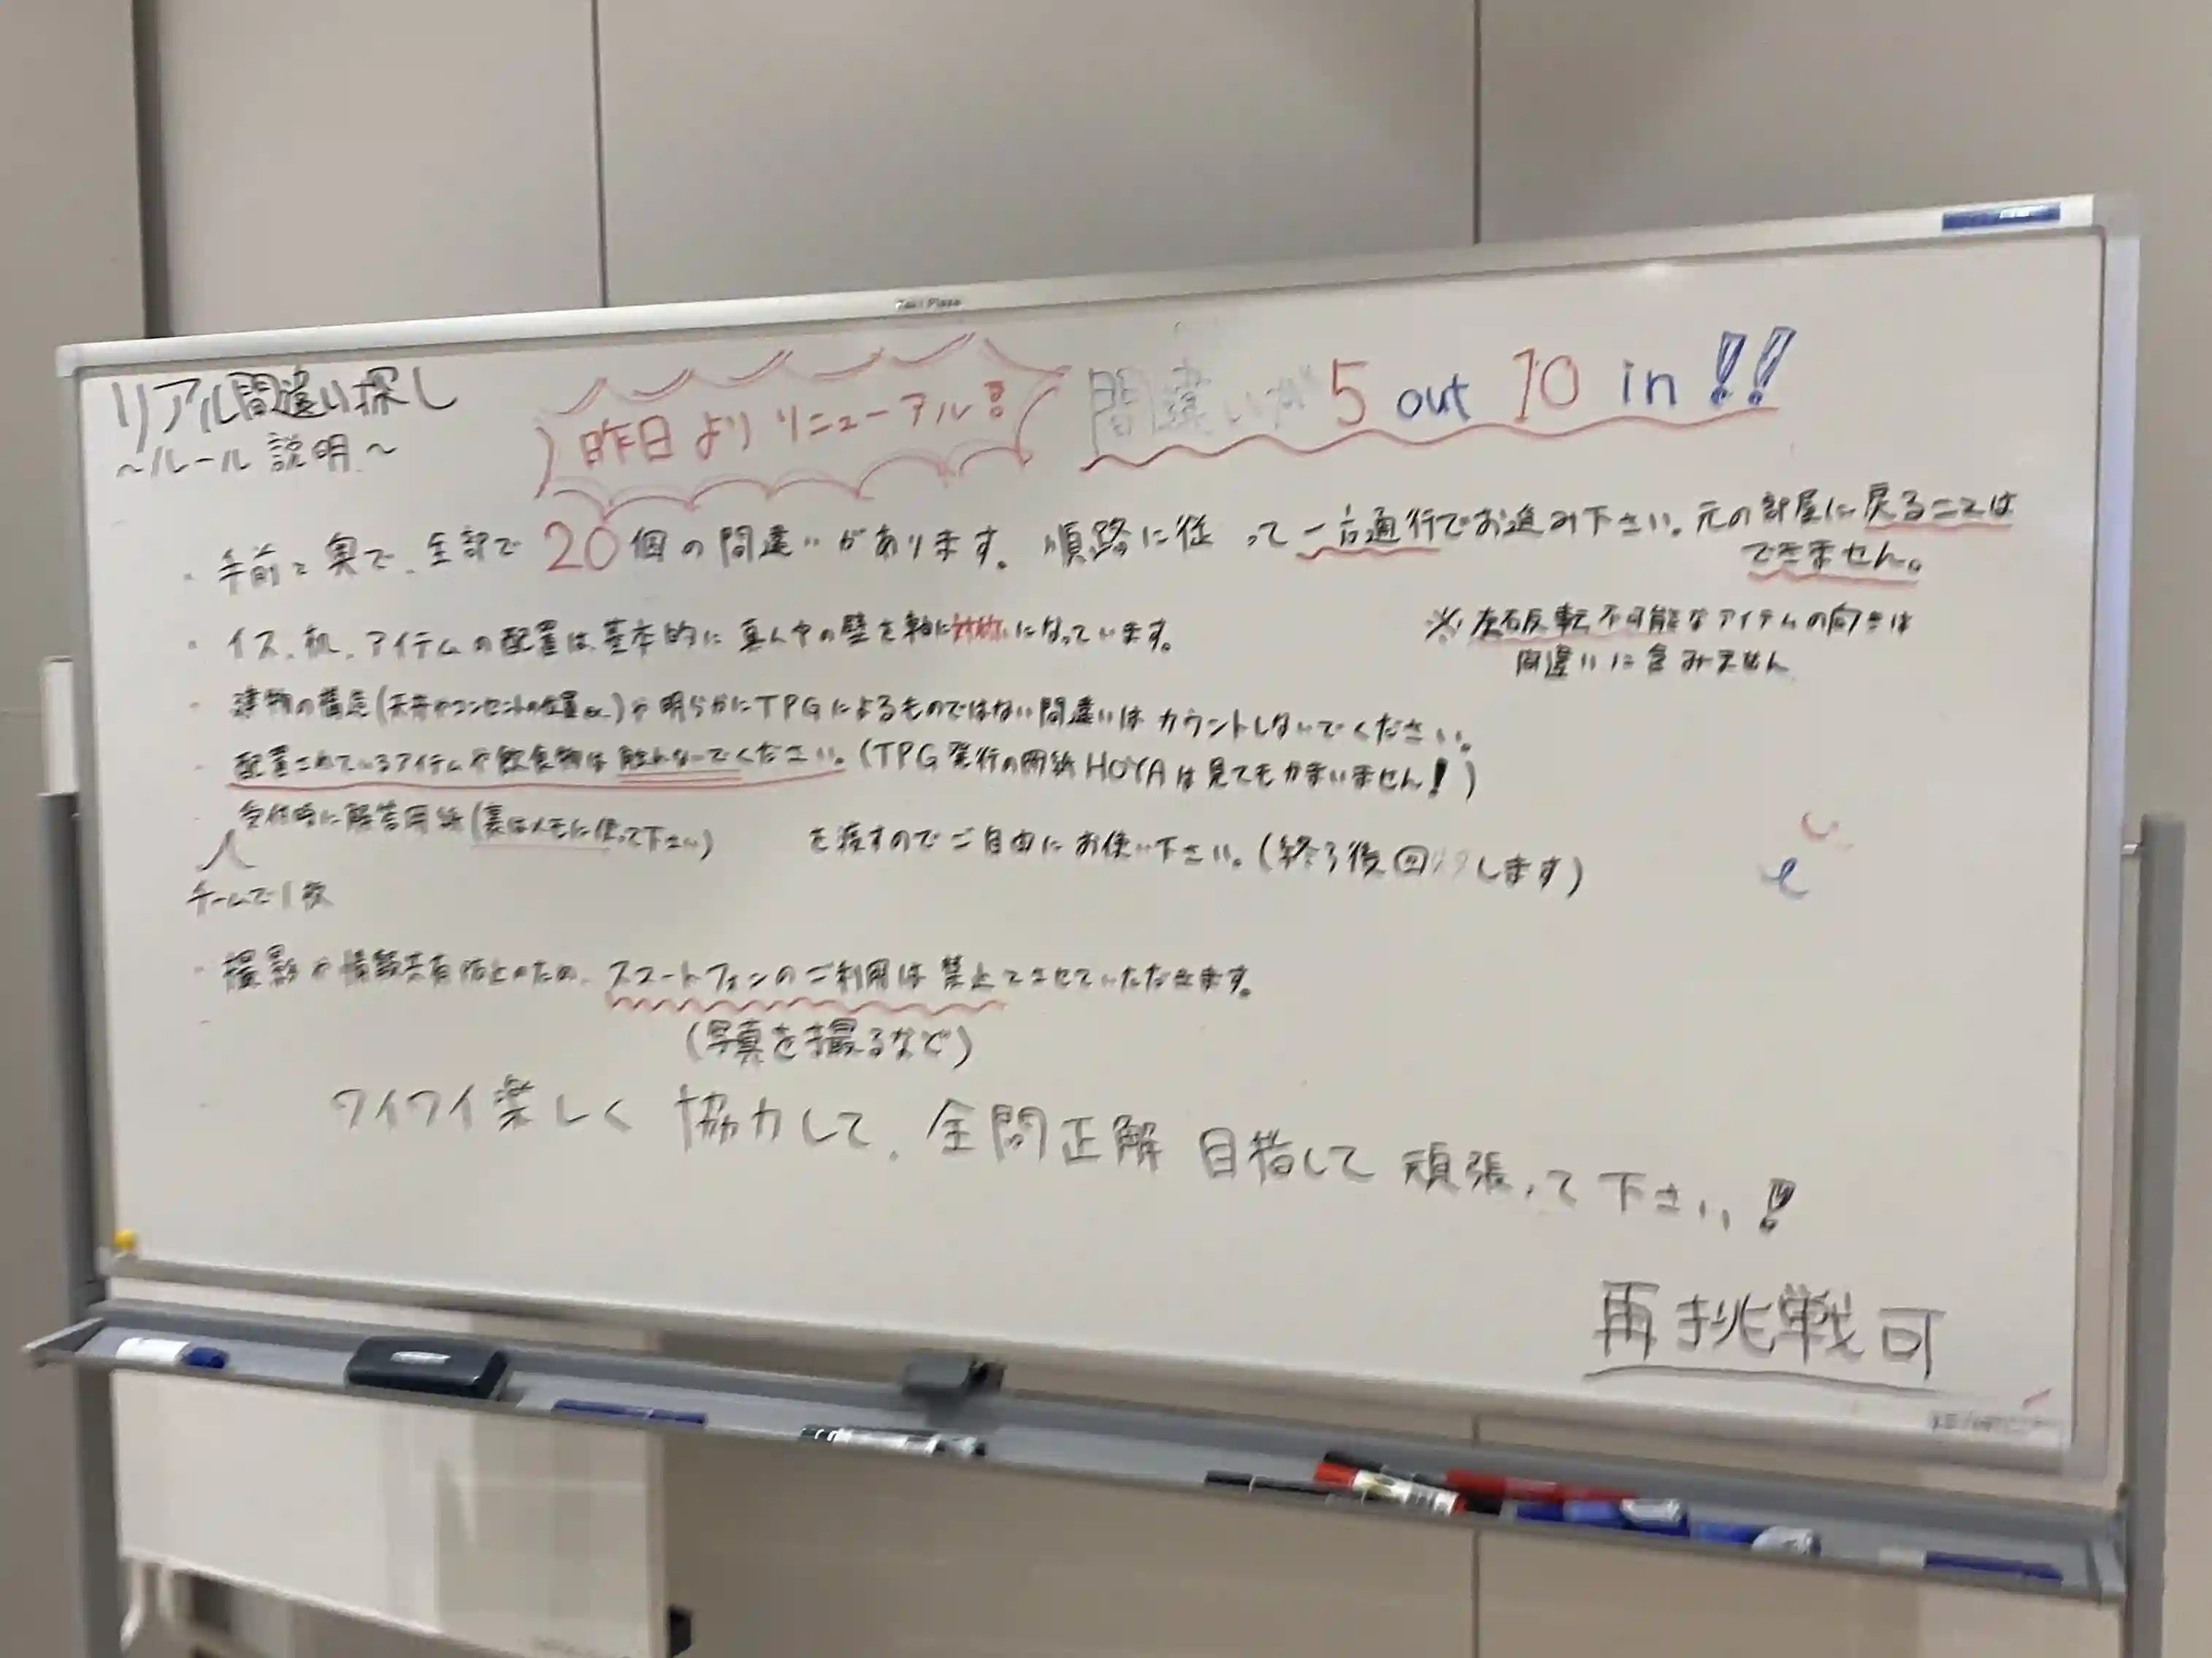 Taki Plaza
リアル間違い探し
～ルール説明～
昨日よりリニューアル!
間違いが 5 out 10 in!!
・手前と奥で、全部で20個の間違いがあります。順路に従って一方通行でお進み下さい。元の部屋に戻ることは
できません。
・イス、机、アイテムの配置は基本的に真ん中の壁を軸に対称になっています。
※左右反転不可能なアイテムの向きは
間違いに含みません
・建物の構造(天井やコンセントの位置etc)や明らかにTPGによるものではない間違いはカウントしないでください。
・配置されているアイテムや飲食物は触れないでください。(TPG発行の HOYAは見てもかまいません!)
受付時に解答用紙(裏はメモに使って下さい) を渡すのでご自由にお使い下さい。(終了後回収します)
チームで1枚
・撮影や情報共有防止のため、スマートフォンのご利用は禁止とさせていただきます。
(写真を撮るなど)
ワイワイ楽しく協力して、全問正解目指して頑張って下さい!
再挑戦可